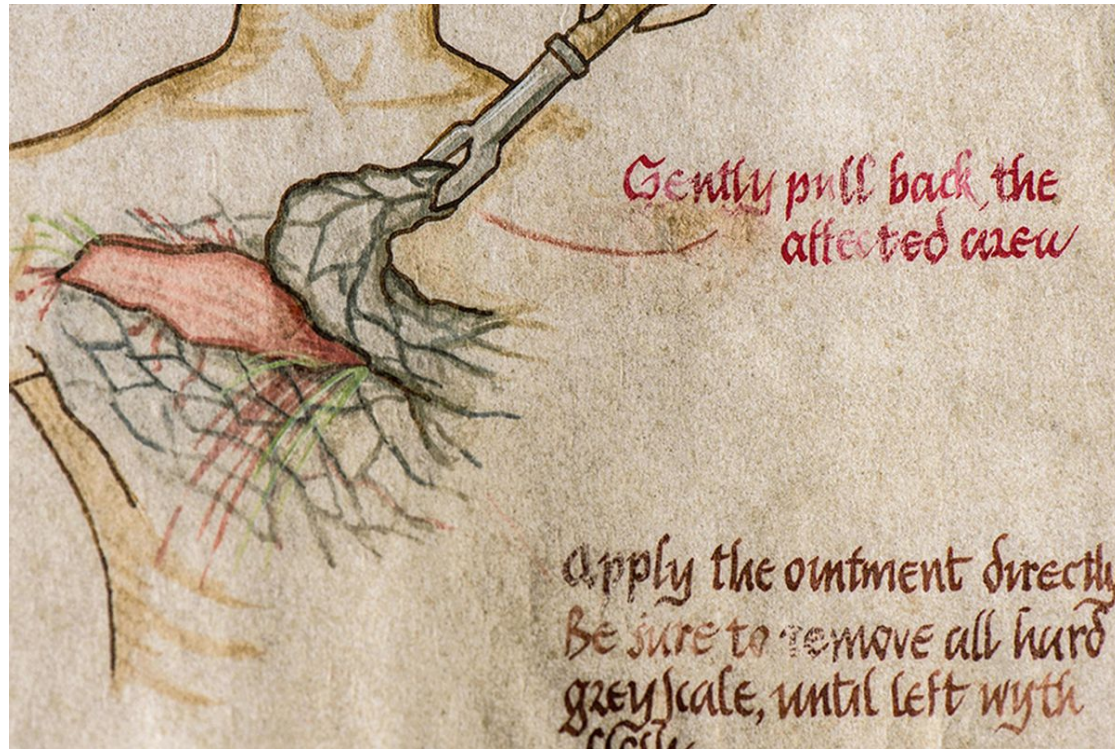 Gently pull back, the
affected area
Apply the ointment directly
Be sure to remove all hard
greyscale, until left wyth